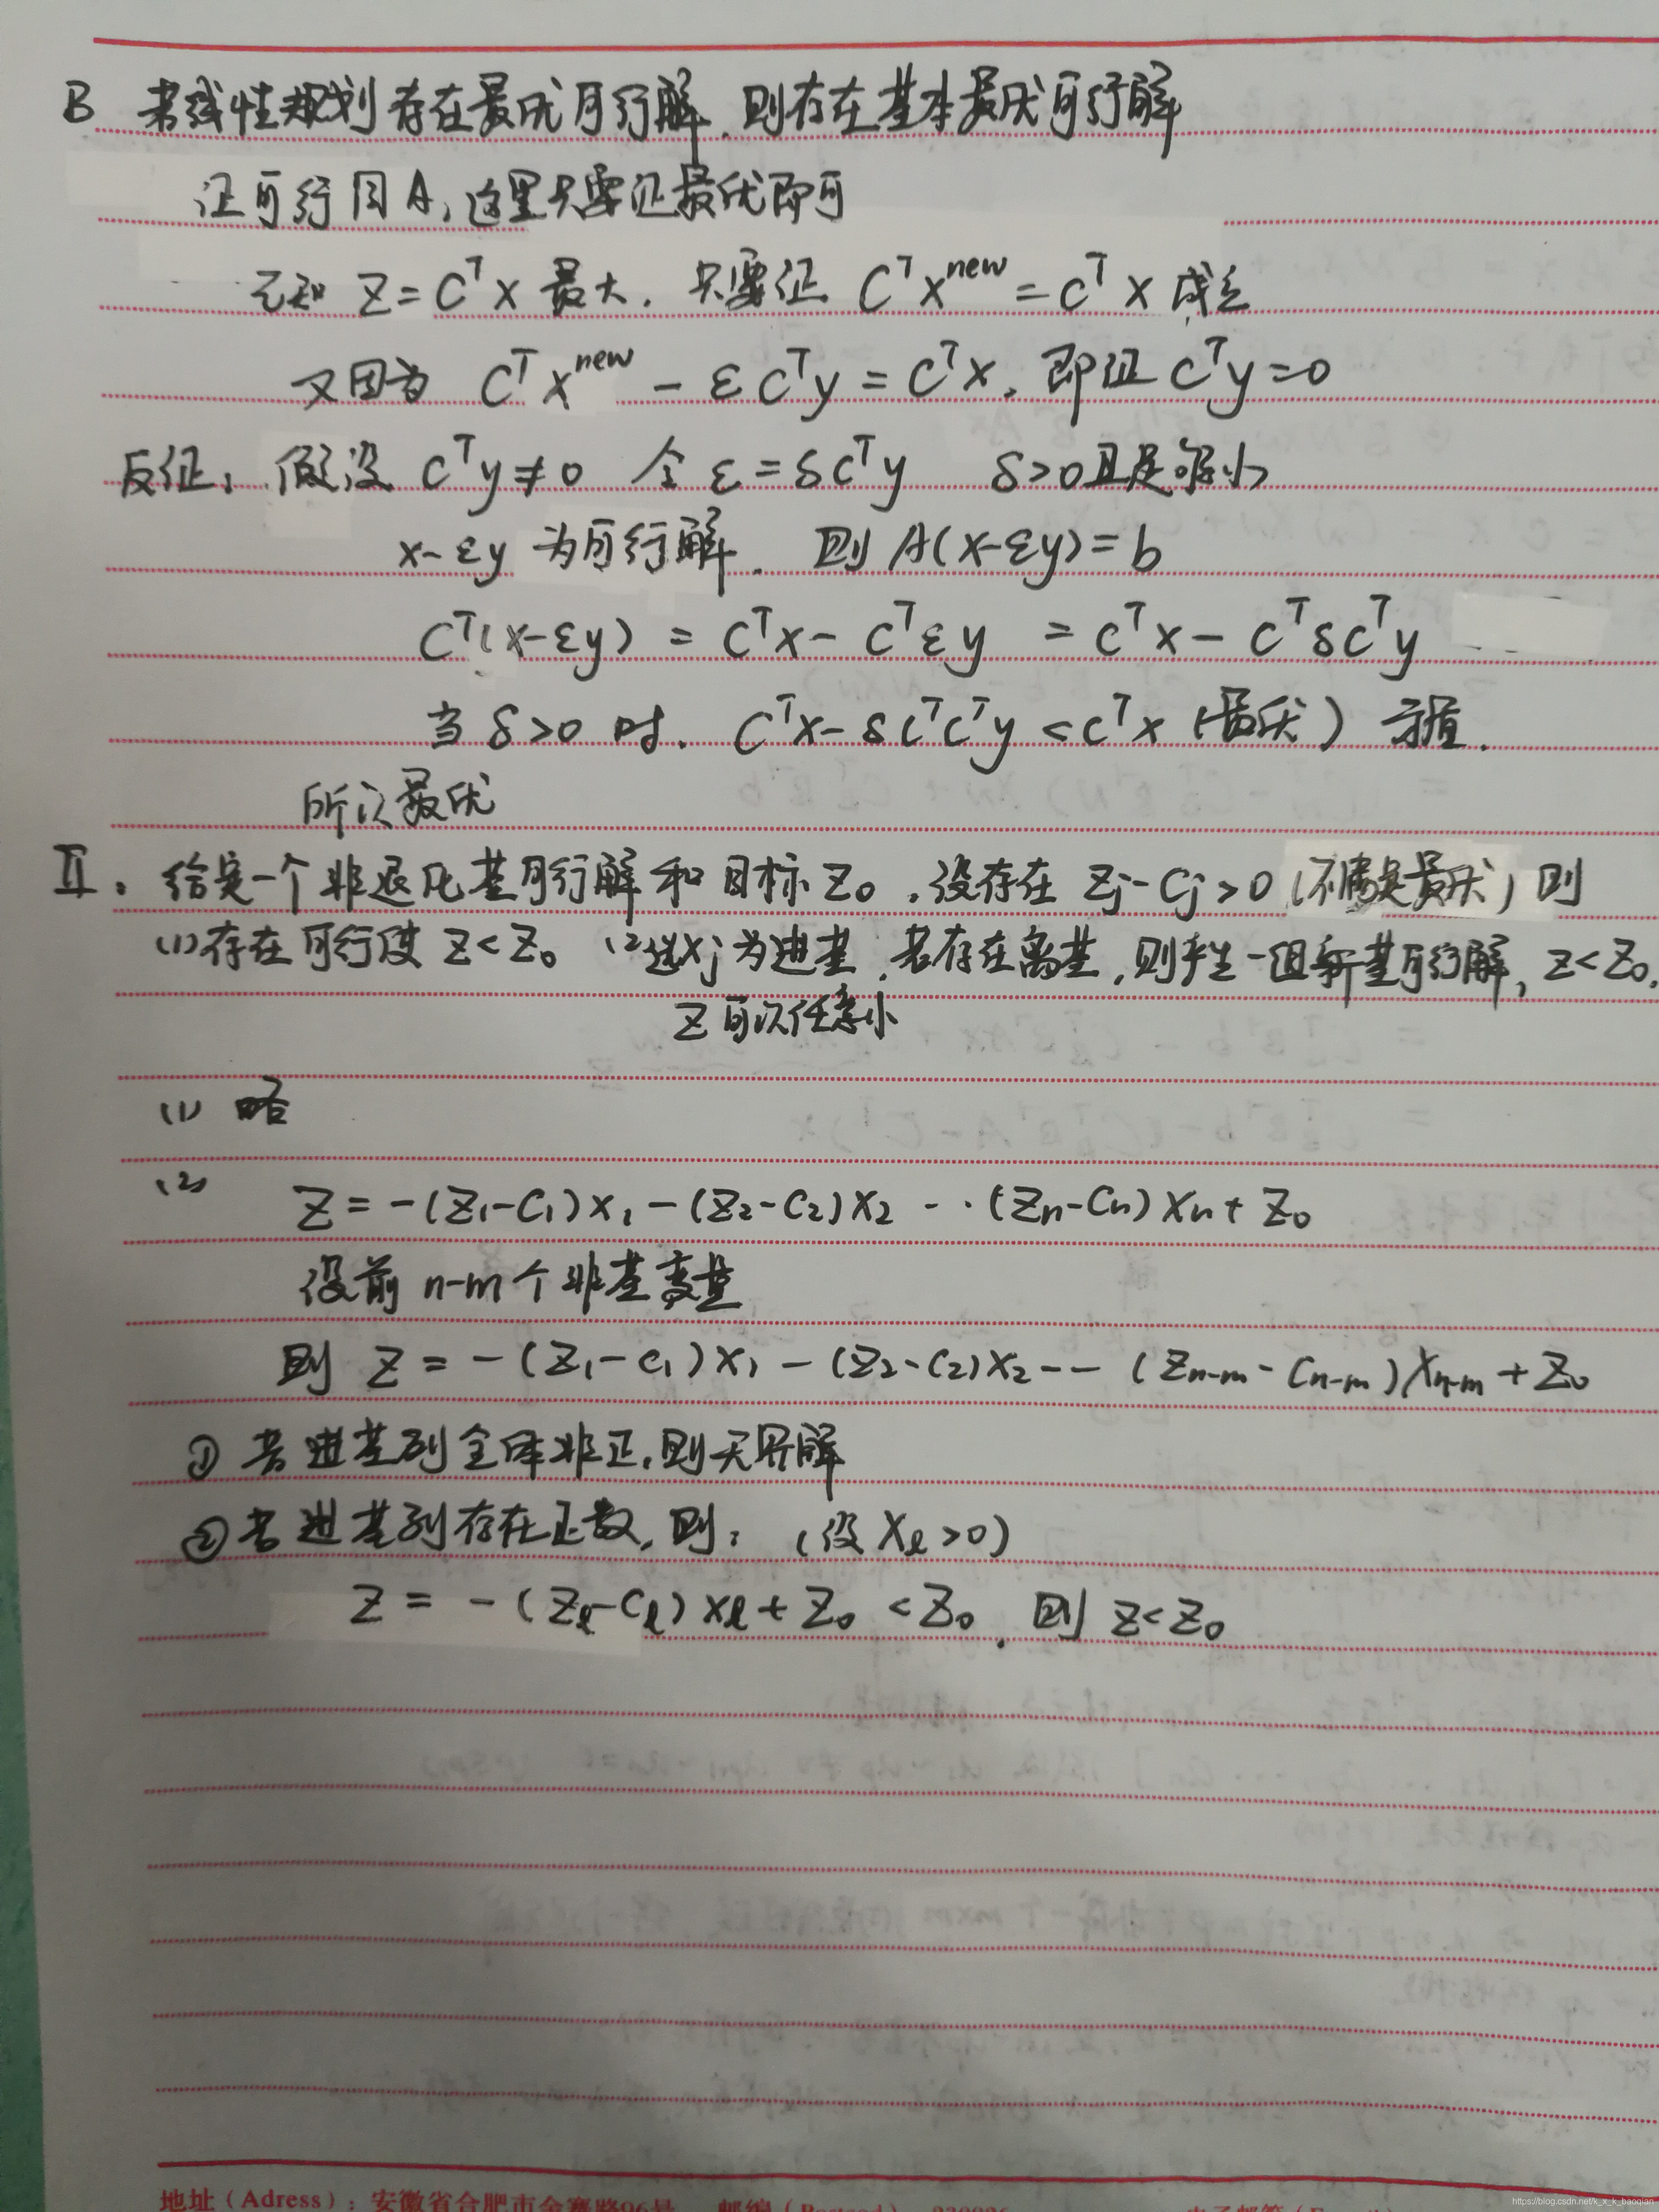 B 若线性规划存在最优可行解,则存在基本最优可行解
证可行同A,这里只要证最优即可
已知 Z=C^T X 最大. 只要证 C^T X^new = C^T X 成立
又因为 C^T X^new - εC^T y = C^T X. 即证 C^T y=0
反证: 假设 C^T y≠0 令 ε=δC^T y δ>0且足够小
x-εy 为可行解. 则 A(x-εy)=b
C^T(x-εy) = C^T x - C^T εy = C^T x - C^T δC^T y
当 δ>0 时. C^T x-δC^T C^T y < C^T x (最优) 矛盾.
所以最优
Ⅱ. 给定一个非退化基可行解和目标 Z₀.设存在 Zj-Cj>0 (不满足最优) 则
(1)存在可行使 Z<Z₀ (2)选Xj为进基,若存在离基,则产生一组新基可行解, Z<Z₀.
Z可以任意小
(1) 略
(2) Z=-(Z₁-C₁)X₁-(Z₂-C₂)X₂ -··(Zn-Cn)Xn+Z₀
设前 n-m个非基变量
则 Z = -(Z₁-C₁)X₁ - (Z₂-C₂)X₂ -- (Zn-m - Cn-m)Xn-m + Z₀
① 若进基列全体非正,则无界解
② 若进基列存在正数,则: (设 Xℓ>0)
Z = -(Zℓ-Cℓ)Xℓ+Z₀ <Z₀. 则 Z<Z₀
地址(Adress): 安徽省合肥市金寨路96号
https://blog.csdn.net/k_x_k_baoqian